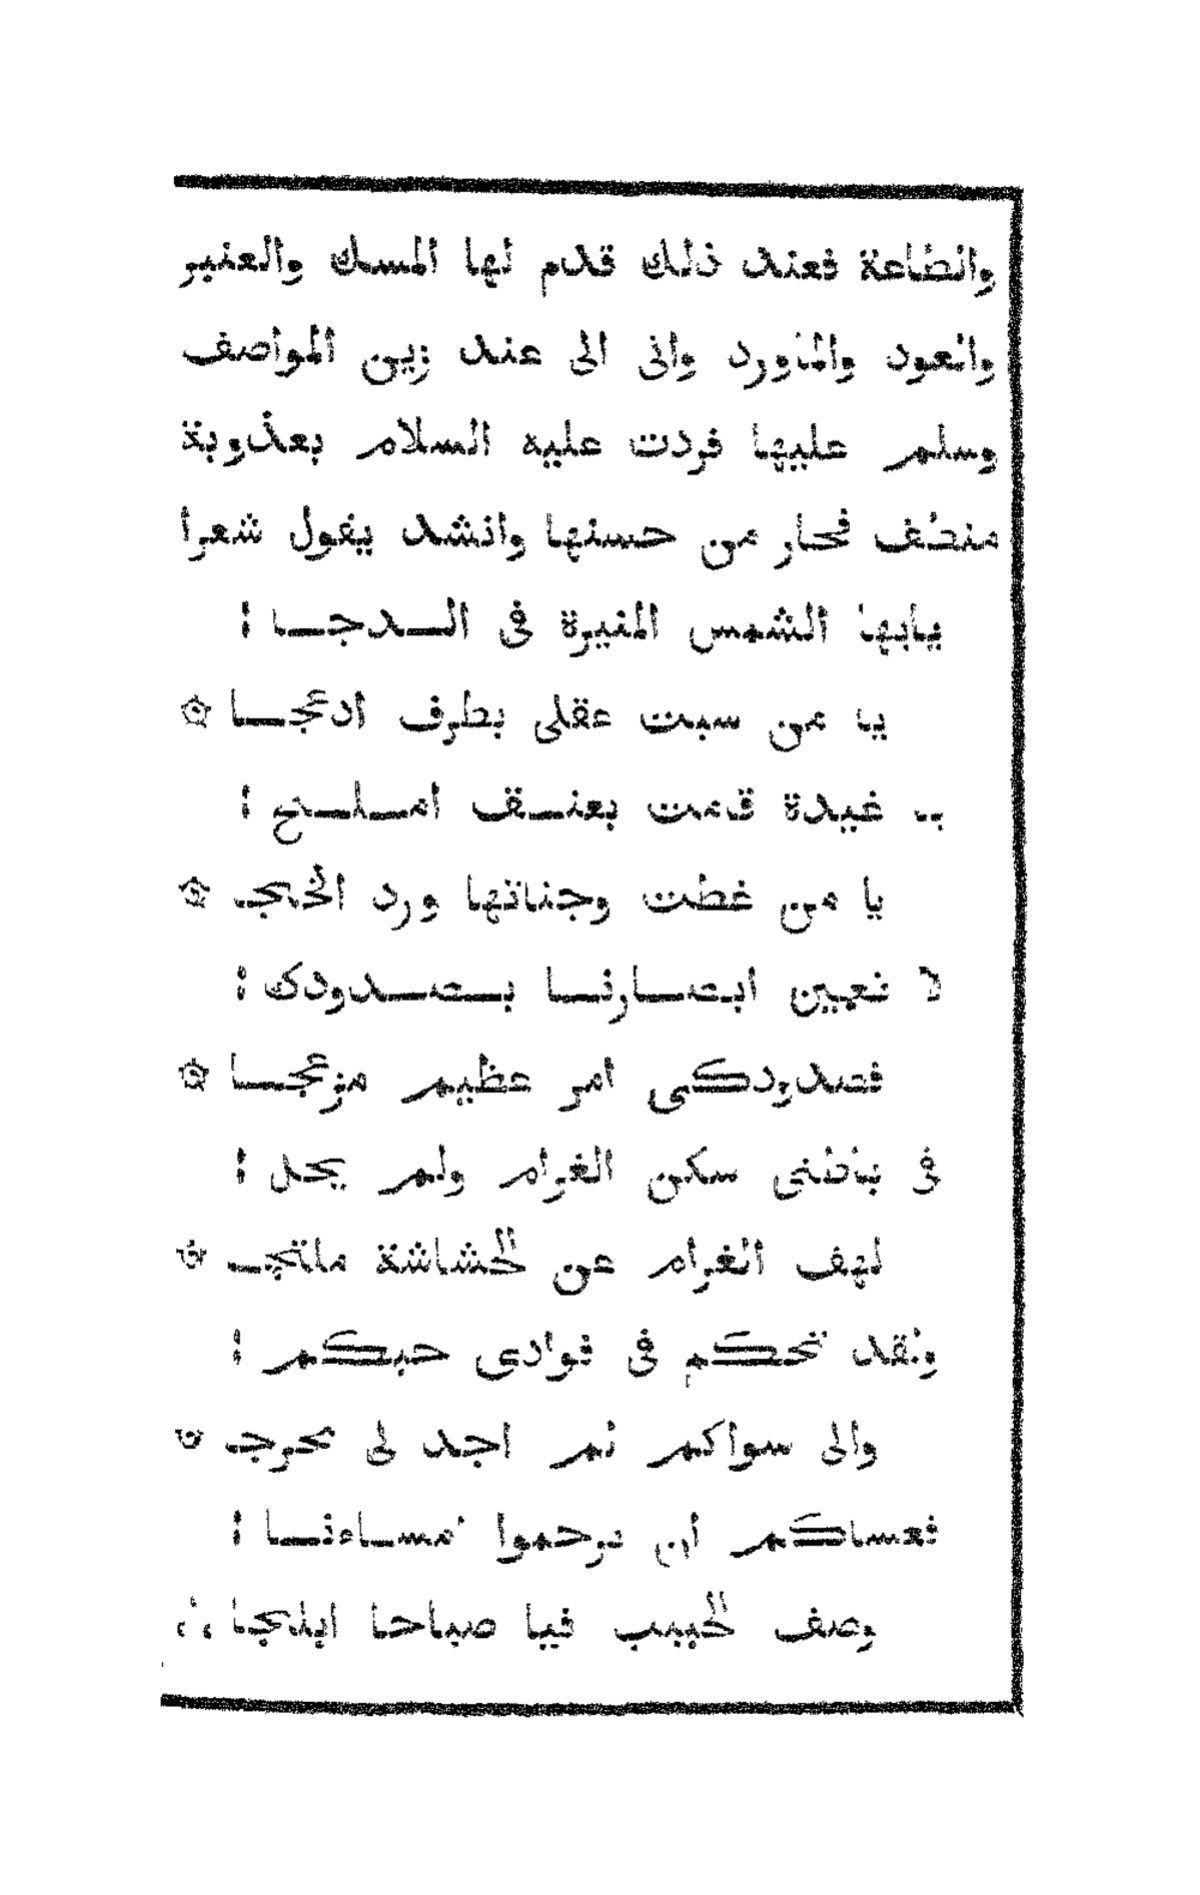 والطاعة فعند ذلك قدم لها المسك والعنبر
والعود والماورد واتى الى عند زين المواصف
وسلم عليها فردت عليه السلام بعذوبة
منطق فحار من حسنها وانشد يقول شعرا
يابها الشمس المنيرة فى الـدجـا :
يا من سبت عقلى بطرف ادعجـا
يا غيدة قدمت بعنـق امـلـح :
يا من غطت وجناتها ورد
لا تعيين ابصـارنـا بـصـدودك :
فصدودكى امر عظيم مزعجـا
فى باطنى سكن الغرام ولم يحل :
لهف الغرام عن الحشاشة
ولقد تحكم فى فوادى حبكم :
والى سواكم لم اجد لى مخرجـ
فعساكم ان ترحموا
وصف الحبيب فيا صباحا ابلجا